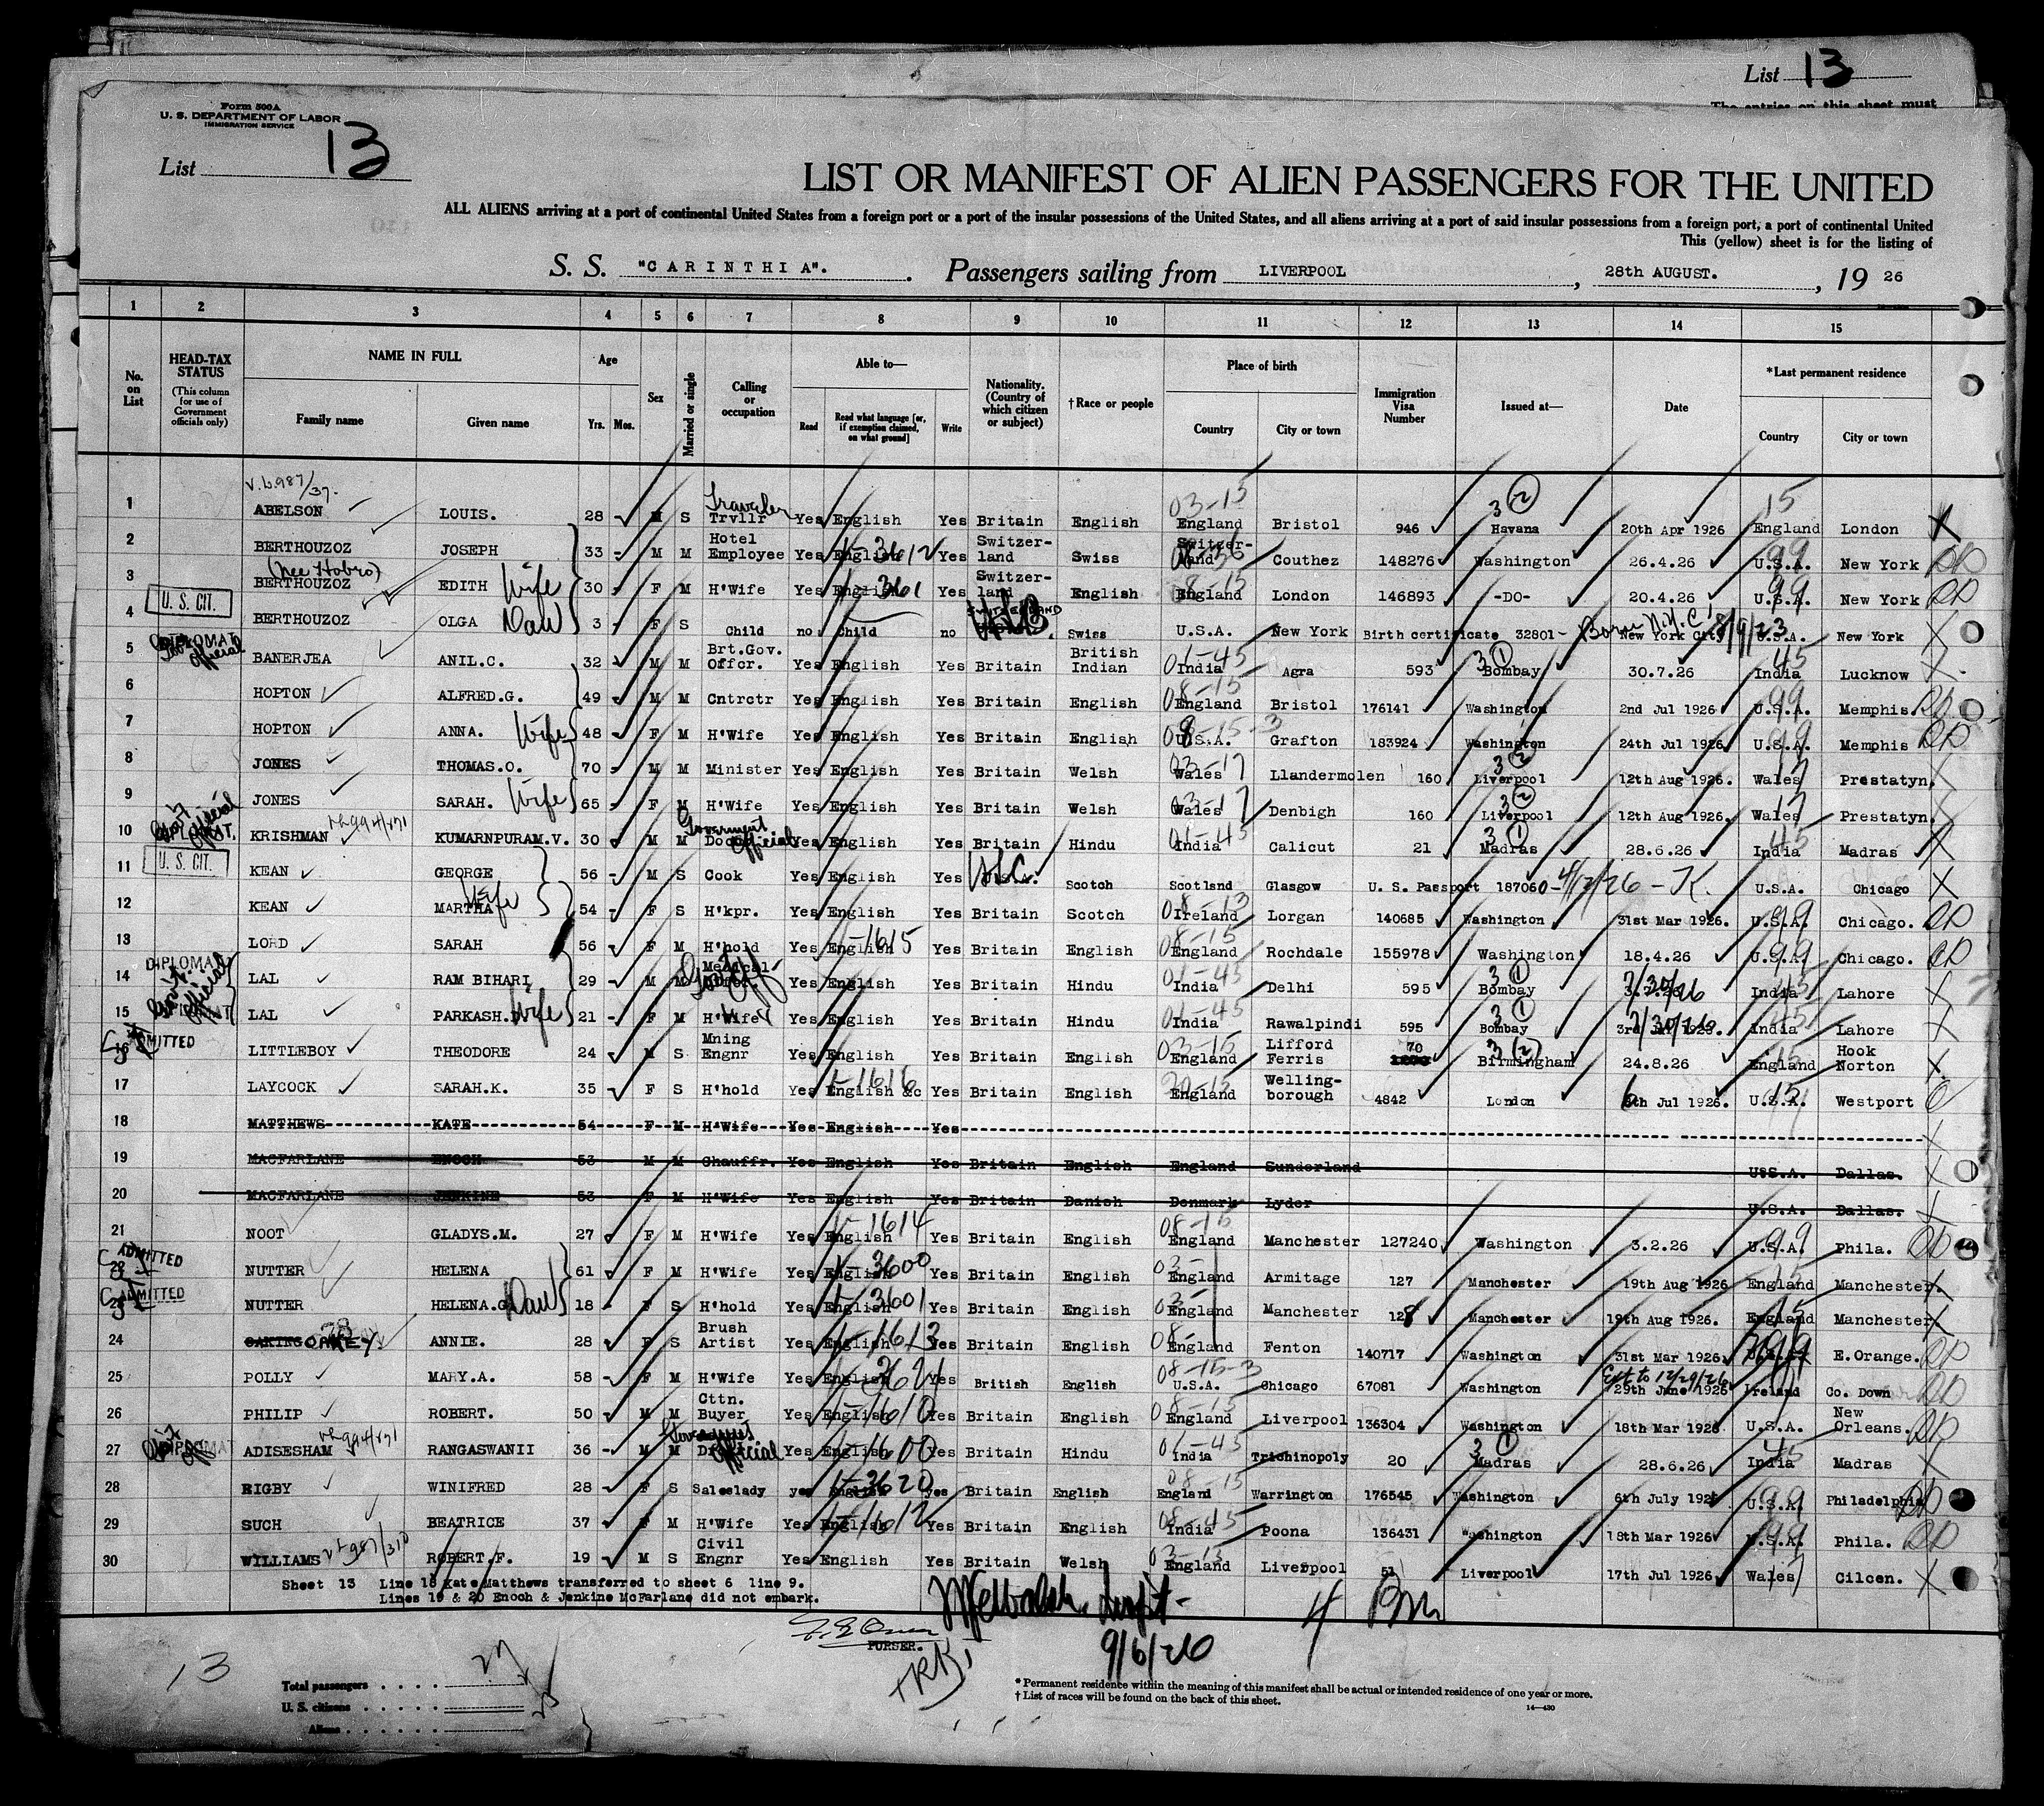 List 13
The entries on this sheet must
Form 500A
U. S. DEPARTMENT OF LABOR
IMMIGRATION SERVICE
List 13
LIST OR MANIFEST OF ALIEN PASSENGERS FOR THE UNITED
ALL ALIENS arriving at a port of continental United States from a foreign port or a port of the insular possessions of the United States, and all aliens arriving at a port of said insular possessions from a foreign port, a port of continental United
This (yellow) sheet is for the listing of
S. S. "CARINTHIA". Passengers sailing from LIVERPOOL, 28th AUGUST., 19 26
1 2 3 4 5 6 7 8 9 10 11 12 13 14 15
No. on List
HEAD-TAX STATUS (This column for use of Government officials only)
NAME IN FULL Family name Given name
Age Yrs. Mos.
Sex
Married or single
Calling or occupation
Able to— Read Read what language [or, if exemption claimed, on what ground] Write
Nationality. (Country of which citizen or subject)
†Race or people
Place of birth Country City or town
Immigration Visa Number
Issued at—
Date
*Last permanent residence Country City or town
1 ABELSON LOUIS. 28 M S Traveler Trvllr Yes English Yes Britain English 03-15 England Bristol 946 3 (2) Havana 20th Apr 1926 15 England London X
2 BERTHOUZOZ JOSEPH 33 M M Hotel Employee Yes English Yes Switzer-land Swiss Switzer-land Couthez 148276 Washington 26.4.26 99 U.S.A. New York
3 (nee Hobro) BERTHOUZOZ EDITH Wife 30 F M H'Wife Yes English Yes Switzer-land English 08-15 England London 146893 -DO- 20.4.26 99 U.S.A. New York
4 U. S. CIT. BERTHOUZOZ OLGA Dau 3 F S Child no Child no Swiss U.S.A. New York Birth certificate 32801 - New York City Born N.Y.C. 8/9/23 U.S.A. New York
5 DIPLOMAT official BANERJEA ANIL.C. 32 M M Brt.Gov. Offcr. Yes English Yes Britain British Indian 01-45 India Agra 593 3 (1) Bombay 30.7.26 45 India Lucknow X
6 HOPTON ALFRED.G. 49 M M Cntrctr Yes English Yes Britain English 08-15 England Bristol 176141 Washington 2nd Jul 1926 99 U.S.A. Memphis
7 HOPTON ANNA. Wife 48 F M H'Wife Yes English Yes Britain English 08-15-3 U.S.A. Grafton 183924 Washington 24th Jul 1926 99 U.S.A. Memphis
8 JONES THOMAS.O. 70 M M Minister Yes English Yes Britain Welsh 03-17 Wales Llandermolen 160 3 (2) Liverpool 12th Aug 1926. 17 Wales Prestatyn.
9 JONES SARAH. Wife 65 F M H'Wife Yes English Yes Britain Welsh 03-17 Wales Denbigh 160 3 (2) Liverpool 12th Aug 1926. 17 Wales Prestatyn.
10 Gov't Official KRISHMAN KUMARNPURAM.V. 30 M M Government Official Yes English Yes Britain Hindu 01-45 India Calicut 21 3 (1) Madras 28.6.26 45 India Madras X
11 U. S. CIT. KEAN GEORGE 56 M S Cook Yes English Yes Scotch Scotland Glasgow U. S. Passport 187060 U.S.A. Chicago X
12 KEAN MARTHA Wife 54 F S H'kpr. Yes English Yes Britain Scotch 08-13 Ireland Lorgan 140685 Washington 31st Mar 1926. 99 U.S.A. Chicago.
13 LORD SARAH 56 F M H'hold Yes English 1-1615 Yes Britain English 08-15 England Rochdale 155978 Washington 18.4.26 99 U.S.A. Chicago.
14 DIPLOMAT Gov't. Official LAL RAM BIHARI 29 M M Medical Yes English Yes Britain Hindu 01-45 India Delhi 595 3 (1) Bombay 7/30/26 45 India Lahore X
15 LAL PARKASH.D. Wife 21 F M H'Wife Yes English Yes Britain Hindu 01-45 India Rawalpindi 595 3 (1) Bombay 7/30/26 45 India Lahore X
16 ADMITTED LITTLEBOY THEODORE 24 M S Mning Engnr Yes English Yes Britain English 03-15 England Lifford Ferris 70 3 (2) Birmingham 24.8.26 15 England Hook Norton X
17 LAYCOCK SARAH.K. 35 F S H'hold Yes English &c 1-1616 Yes Britain English England Welling-borough 4842 London 6th Jul 1926. U.S.A. Westport
18 MATTHEWS KATE 54 F M H'Wife Yes English Yes
19 MACFARLANE ENOCH 53 M M Chauffr. Yes English Yes Britain English England Sunderland U.S.A. Dallas. X
20 MACFARLANE JENKINE 53 F M H'Wife Yes English Yes Britain Danish Denmark Lyder U.S.A. Dallas. X
21 NOOT GLADYS.M. 27 F M H'Wife Yes English 1-1614 Yes Britain English 08-15 England Manchester 127240 Washington 3.2.26 99 U.S.A. Phila.
22 ADMITTED NUTTER HELENA 61 F M H'Wife Yes English 1-3600 Yes Britain English 03- England Armitage 127 Manchester 19th Aug 1926 15 England Manchester. X
23 ADMITTED NUTTER HELENA.G. Dau 18 F S H'hold Yes English 1-3601 Yes Britain English 03- England Manchester 128 Manchester 19th Aug 1926. 15 England Manchester X
24 OAKEY. ANNIE. 28 F S Brush Artist Yes English 1-1613 Yes Britain English 08- England Fenton 140717 Washington 31st Mar 1926. 99 E.Orange.
25 POLLY MARY.A. 58 F M H'Wife Yes English 1-3621 Yes British English 08-15-3 U.S.A. Chicago 67081 Washington Ext to 12/29/26 29th June 1926 Ireland Co. Down
26 PHILIP ROBERT. 50 M M Cttn. Buyer Yes English 1-1610 Yes Britain English 08-15 England Liverpool 136304 Washington 18th Mar 1926 U.S.A. New Orleans.
27 DIPLOMAT ADISESHAM RANGASWANII 36 M M Government Official Yes English 1-1600 Yes Britain Hindu 01-45 India Trichinopoly 20 3 (1) Madras 28.6.26 45 India Madras X
28 RIGBY WINIFRED 28 F S Saleslady yes English 1-3620 yes Britain English 08-15 England Warrington 176545 Washington 6th July 1926 99 U.S.A. Philadelphia
29 SUCH BEATRICE 37 F M H'Wife Yes English 1-1612 Yes Britain English 08-45 India Poona 136431 Washington 18th Mar 1926 99 U.S.A. Phila.
30 WILLIAMS ROBERT.F. 19 M S Civil Engnr Yes English Yes Britain Welsh 03-15 England Liverpool 51 Liverpool 17th Jul 1926 17 Wales Cilcen. X
Sheet 13 Line 18 Kate Matthews transferred to sheet 6 line 9.
Lines 19 & 20 Enoch & Jenkine McFarlane did not embark.
9/6/26
PURSER.
13
Total passengers 27
U. S. citizens
Aliens
* Permanent residence within the meaning of this manifest shall be actual or intended residence of one year or more.
† List of races will be found on the back of this sheet.
14—430